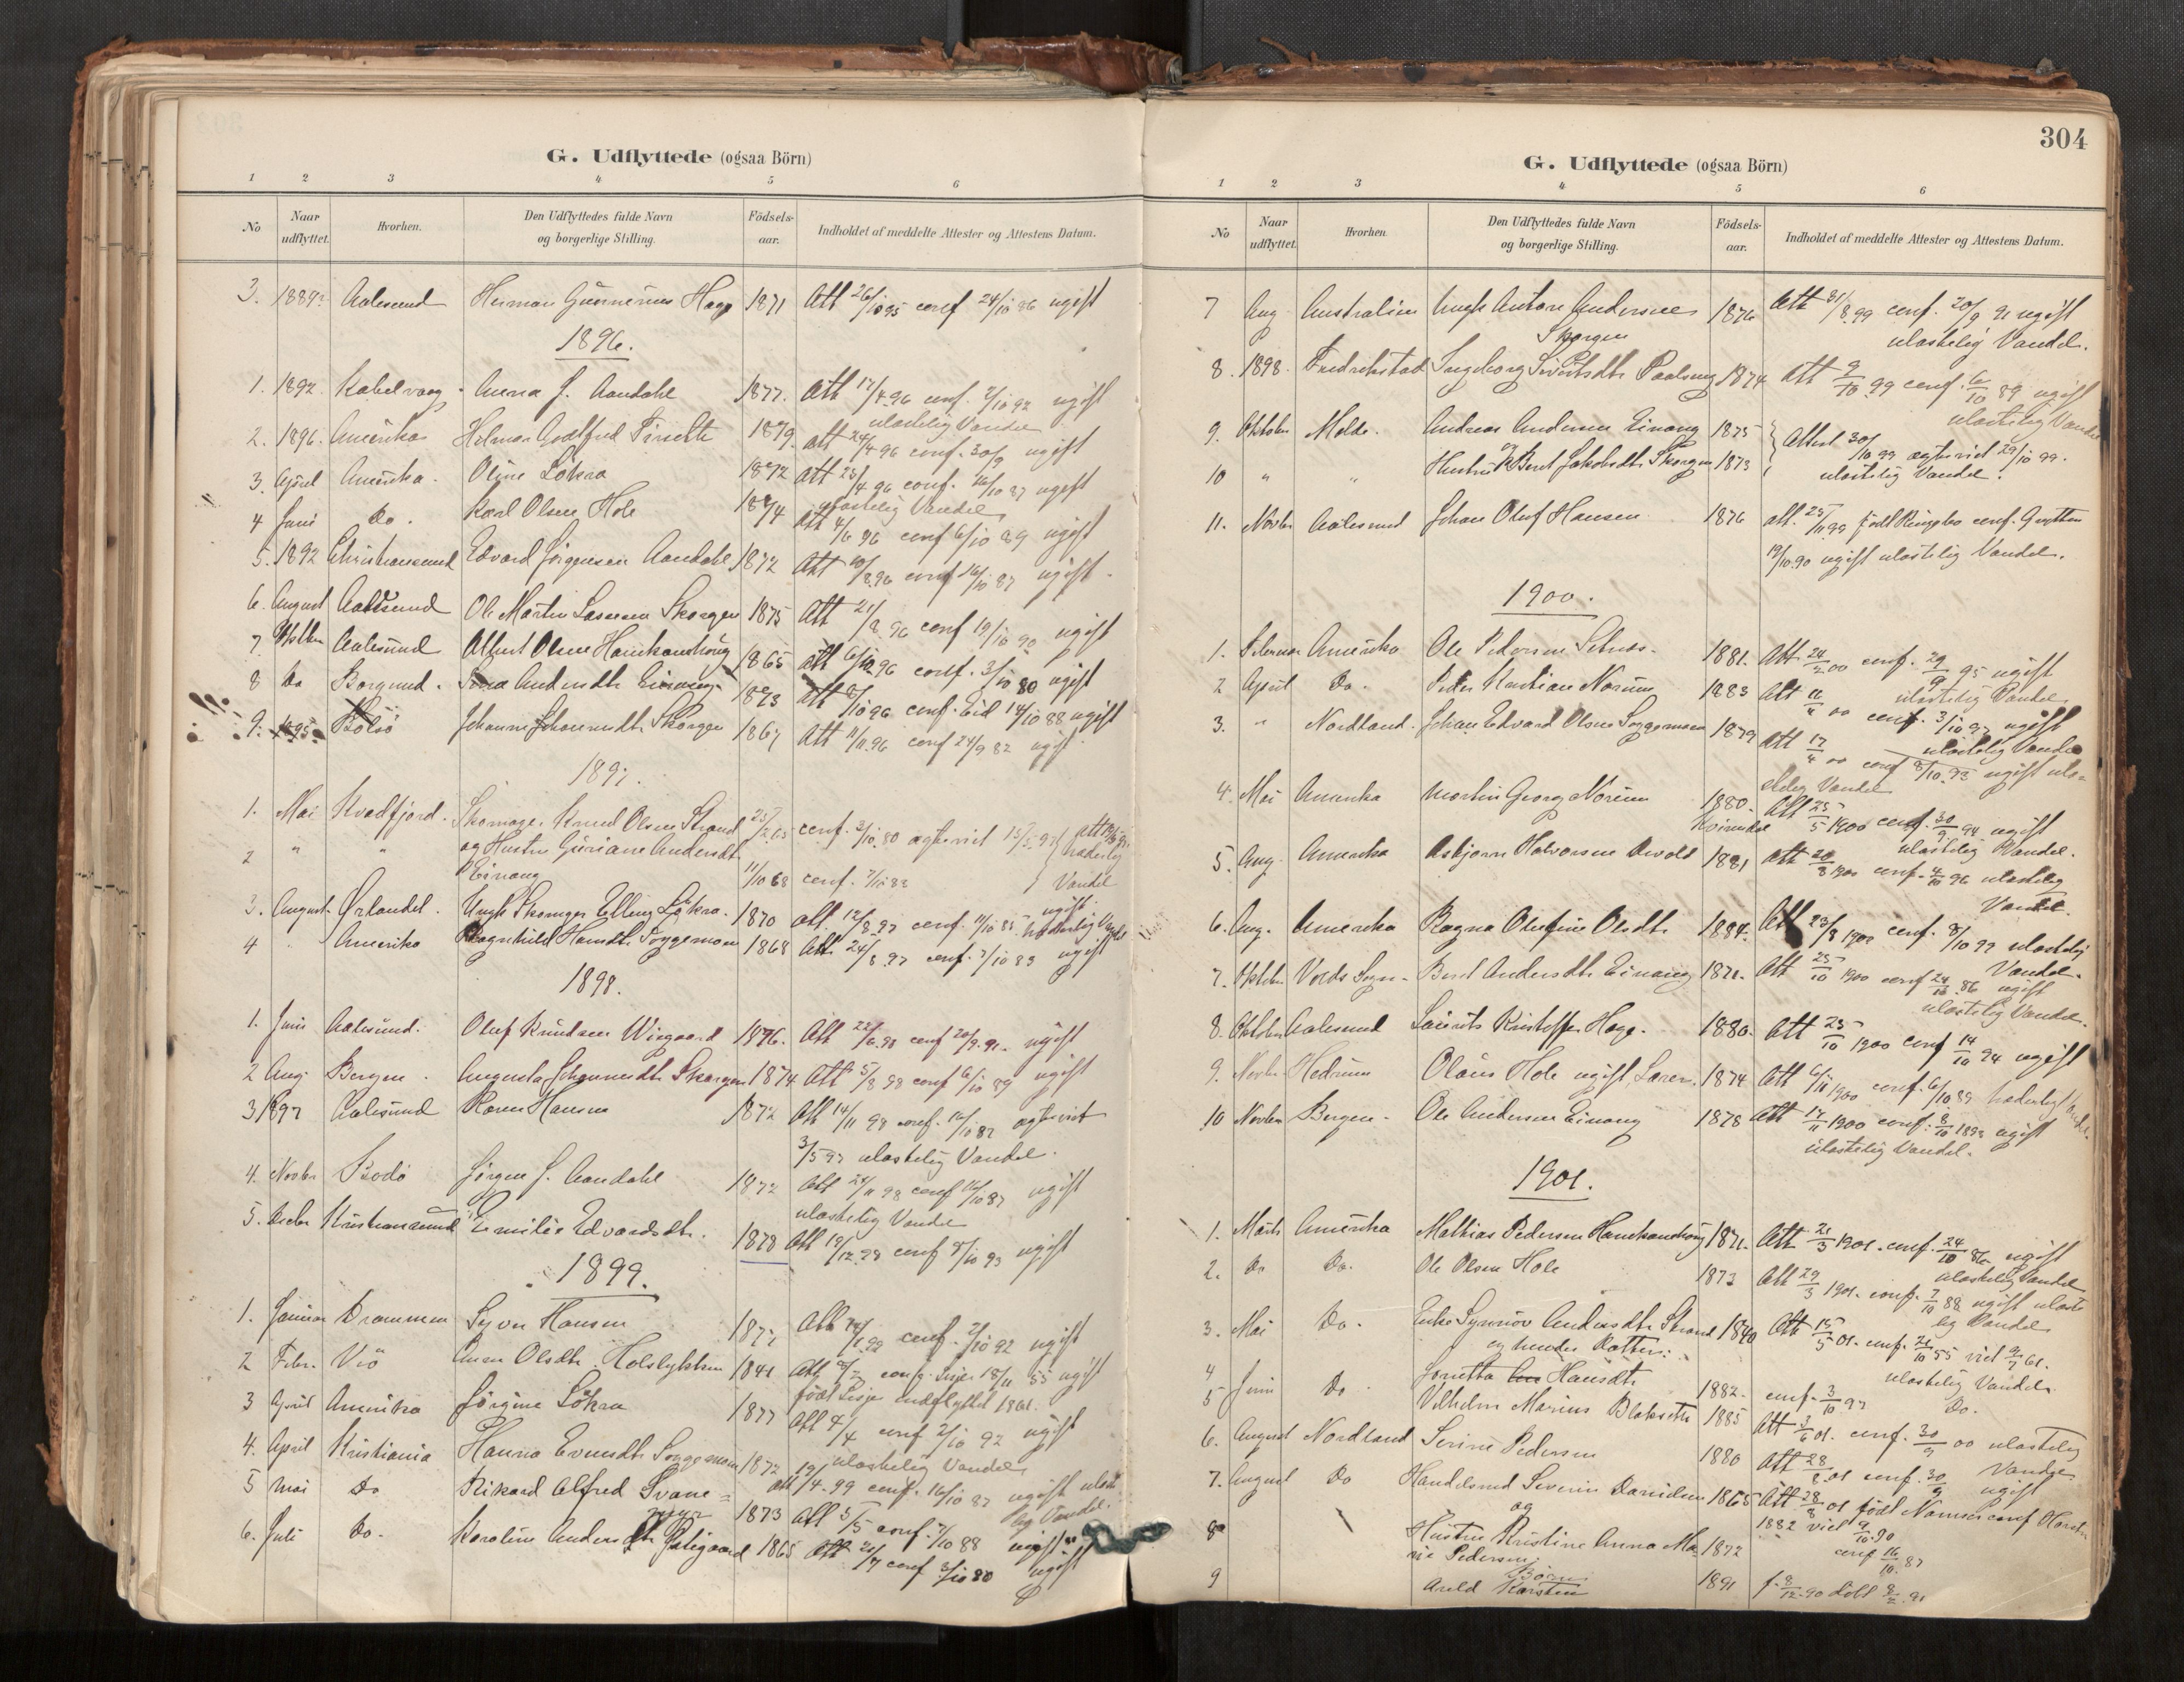 G. Udflyttede (ogsaa Börn)
1 2 3 4 5 6
No Naar udflyttet. Hvorhen. Den Udflyttedes fulde Navn og borgerlige Stilling. Födsels-aar. Indholdet af meddelte Attester og Attestens Datum.
3. 1889 Aalesund Herman Gunnerius Hage 1871 Att 26/10 95 conf 24/10 86 ugift
1896.
1. 1892 Kabelvaag Anna J. Aandahl 1877. Att 17/4 96 conf. 2/10 92 ugift
ulastelig Vandel
2. 1896. Amerika Hilmar Godtfred 1879. att 24/4 96 conf. 30/9 ugift
3. April Amerika. Oline Lökra 1872 Att 25/4 96 conf. 16/10 87 ugift
ulastelig Vandel
4 Juni Do. Karl Olsen Hole 1874 Att 4/6 96 conf 6/10 89 ugift
5. 1892 Christiansund Edvard Jörgensen Aandahl 1872 Att 10/8 96 conf 16/10 87 ugift.
6. August Aalesund Ole Martin Lassesen Skorgen 1875 Att 21/8 96 conf 19/10 90 ugift
7 Oktbr Aalesund Albert Olsen Hamkanshoug 1865 att 6/10 96 conf. 3/10 80 ugift
8 Do Borgund. Andersdtr Einang 1873 Att 8/10 96 conf. Eid 14/10 88 ugift
9. 1895 Bolsö Johanne Johannesdtr Skorgen 1867 Att 11/11 96 conf 24/9 82 ugift.
1897.
1. Mai Kvedfjord. Skomager Knud Olsen Strand 25/2 65 conf. 3/10 80 egteviet
2 " " og Hustru Guriane Andersdtr
Einang 11/10 68 conf. 7/10 83 Vandel
3. August Ørlandet. Ungk Skomager Elling Lökra. 1870 att. 12/8 97 conf. 11/10 85 hæderlig Vandel
4 " Amerika Ragnhild Hansdtr Soggemoen 1868 Att 24/8 97 conf. 7/10 83 ugift
1898.
1. Juni Aalesund. Oluf Knudsen Wiigaard 1876. Att 22/6 98 conf 20/9 91. ugift
2 Aug Bergen. Augusta Johannesdtr Skorgen 1874 Att 5/8 98 conf 6/10 89 ugift
3 1897 Aalesund Karen Hansen 1872 Att 14/11 98 conf. 16/10 87 egteviet
3/5 97 ulastelig Vandel.
4. Novbr Bodö Jörgen J. Aandahl 1872 Att 24/11 98 conf 16/10 87 ugift
ulastelig Vandel
5. Decbr Kristiansund Emilie Edvardsdtr. 1878 Att 19/12 98 conf 8/10 93 ugift
1899.
1. Januar Drammen Syver Hansen 1877 Att 99 conf. 2/10 92 ugift
2 Febr. Viö Anne Olsdtr. Holslykken 1841 Att conf. Lesje 18/11 55 ugift
födt Lesje indflyttet 1861.
3 April Amerika Jörgine Lökra 1877 Att 4/4 conf 2/10 92 ugift
ulastelig Vandel
4. April Kristiania Hanna Evensdtr Soggemoen 1872 att /4 99 conf. 16/10 87 ugift ulast-
elig Vandel.
5 Mai Do Rikard Alfred Svane= 1873 Att 5/5 conf. 7/10 88 ugift
6. Juli Do. Karoline Andersdtr 1865 Att. 21/7 conf 3/10 80 ugift
304
G. Udflyttede (ogsaa Börn)
1 2 3 4 5 6
No Naar udflyttet. Hvorhen. Den Udflyttedes fulde Navn og borgerlige Stilling. Födsels-aar. Indholdet af meddelte Attester og Attestens Datum.
7 Aug Australien Ungk Anton Andersen 1876 Att 31/8 99 conf. 20/9 91 ugift
Skorgen ulastelig Vandel.
8. 1898. Fredrikstad Ingeborg Sivertsdtr 1874 Att 9/10 99 conf. 6/10 89 ugift
ulastelig Vandel
9. Oktober Molde. Andreas Andersen Einang 1875 Attest 30/10 99 egteviet 29/10 99.
10 " " og Hustru Berit Jakobsdtr Skorgen 1873 ulastelig Vandel.
11. Novbr Aalesund Johan Oluf Hansen 1876 att. 25/11 99 födt Ringebo conf. Grytten
19/10 90 ugift ulastelig Vandel.
1900.
1. Februar Amerika Ole Pedersen Setnes. 1881. Att 24/2 00 conf. 29/9 95 ugift
ulastelig Vandel.
2 April Do. Peder Kristian Norum 1883 Att 16/4 00 conf. 3/10 97 ugift
ulastelig Vandel
3. " Nordland. Johan Edvard Olsen Soggemoen 1879 Att 17/4 00 conf 8/10 93 ugift ula-
stelig Vandel
4. Mai Amerika Martin Georg Norum 1880. Att 25/5 1900 conf. 30/9 94 ugift
ulastelig Vandel.
5. Aug. Amerika Asbjørn Halvorsen Devold 1881 Att 20/8 1900 conf. 4/10 96 ulastelig
Vandel.
6. Aug. Amerika Ragna Olufine Olsdtr 1884. Att 23/8 1900 conf. 8/10 99 ulastelig
Vandel.
7. Oktober Volds Sogn. Berit Andersdtr Einang 1871. Att 25/10 1900 conf 24/10 86 ugift
ulastelig Vandel.
8. Oktober Aalesund Laurits Kristoffer Hage. 1880. Att 25/10 1900 conf 14/10 94 ugift
9. Novbr Hedrum Olaus Hole ugift Lærer. 1874 Att 6/11 1900 conf. 6/10 89 hæderlig Vandel.
10 Novbr Bergen. Ole Andersen Einang 1878 Att 17/11 1900 conf: 8/10 1893 ugift
ulastelig Vandel.
1901.
1. Marts Amerika Mathias Pedersen Hamkanshoug 1871. Att 21/3 1901. conf. 24/10 86 ugift
ulastelig Vandel
2. Do Do. Ole Olsen Hole 1873 Att 29/3 1901. conf. 7/10 88 ugift ulaste
lig Vandel
3. Mai Do. Enke Synnöv Andersdtr Strand 1840 Att 15/5 01. conf. 21/10 55 viet 9/7 61.
og hendes Datter: ulastelig Vandel.
4 Jonetta Hansdtr 1882. conf. 3/10 97 Do.
5 Juni Do. Vilhelm Marius Blakseth 1885 Att 3/6 01. conf. 30/9 00 ulastelig
Vandel
6. August Nordland Serine Pedersen 1880 Att 28/8 01 conf. 30/9 ugift
7. August Do Handelsmd Severin Danielsen 1865 Att 28/8 01 födt Namsos conf
og 1882 viet 9/10 90
8 Hustru Kristine Anna Ma- 1872 conf 16/10. 87
rie Pedersen.
Børn
9 Karsten 1891 f. 8/12 90 döbt 8/2 91